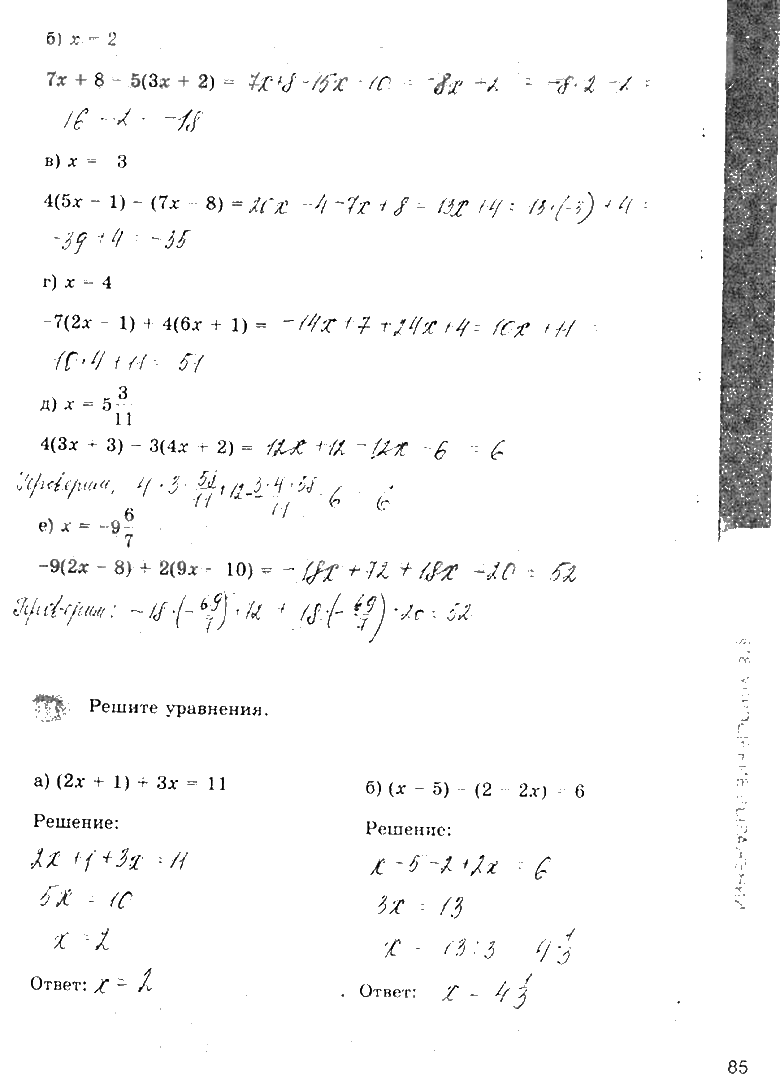 б) x = 2
7x + 8 - 5(3x + 2) = 7x+8-15x-10 = -8x-2 = -8·2-2 =
16 - 2 = -18
в) x = 3
4(5x - 1) - (7x - 8) = 20x -4-7x+8 = 13x+4 = 13·(-3)+4 =
-39+4 = -35
г) x = 4
-7(2x - 1) + 4(6x + 1) = -14x+7+24x+4 = 10x+11 =
10·4+11 = 51
д) x = 5 3/11
4(3x + 3) - 3(4x + 2) = 12x+12-12x-6 = 6
Проверим, 4·3·58/11+12-3·4·58/11-6 = 6
е) x = -9 6/7
-9(2x - 8) + 2(9x - 10) = -18x+72+18x-20 = 52
Проверим: -18·(-69/7)+72+18·(-69/7)-20 = 52
Решите уравнения.
а) (2x + 1) + 3x = 11
Решение:
2x+1+3x=11
5x = 10
x = 2
Ответ: x = 2
б) (x - 5) - (2 - 2x) = 6
Решение:
x-5-2+2x = 6
3x = 13
x = 13:3 4 1/3
Ответ: x = 4 1/3
85